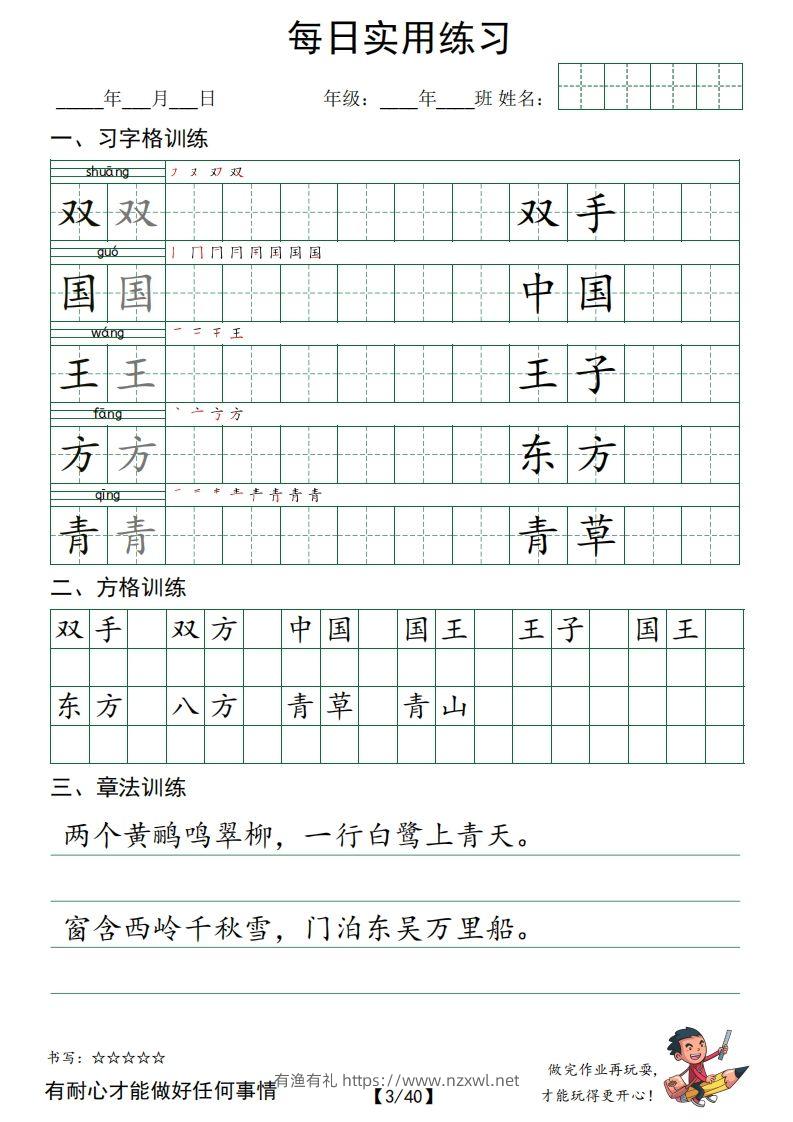 每日实用练习
_____年___月___日 年级：____年____班 姓名：
一、习字格训练
shuāng
双 双 双 手
guó
国 国 中 国
wáng
王 王 王 子
fāng
方 方 东 方
qīng
青 青 青 草
二、方格训练
双 手 双 方 中 国 国 王 王 子 国 王
东 方 八 方 青 草 青 山
三、章法训练
两个黄鹂鸣翠柳，一行白鹭上青天。
窗含西岭千秋雪，门泊东吴万里船。
书写：☆☆☆☆☆
有耐心才能做好任何事情
有渔有礼 https://www.nzxwl.net
【3/40】
做完作业再玩耍，
才能玩得更开心！